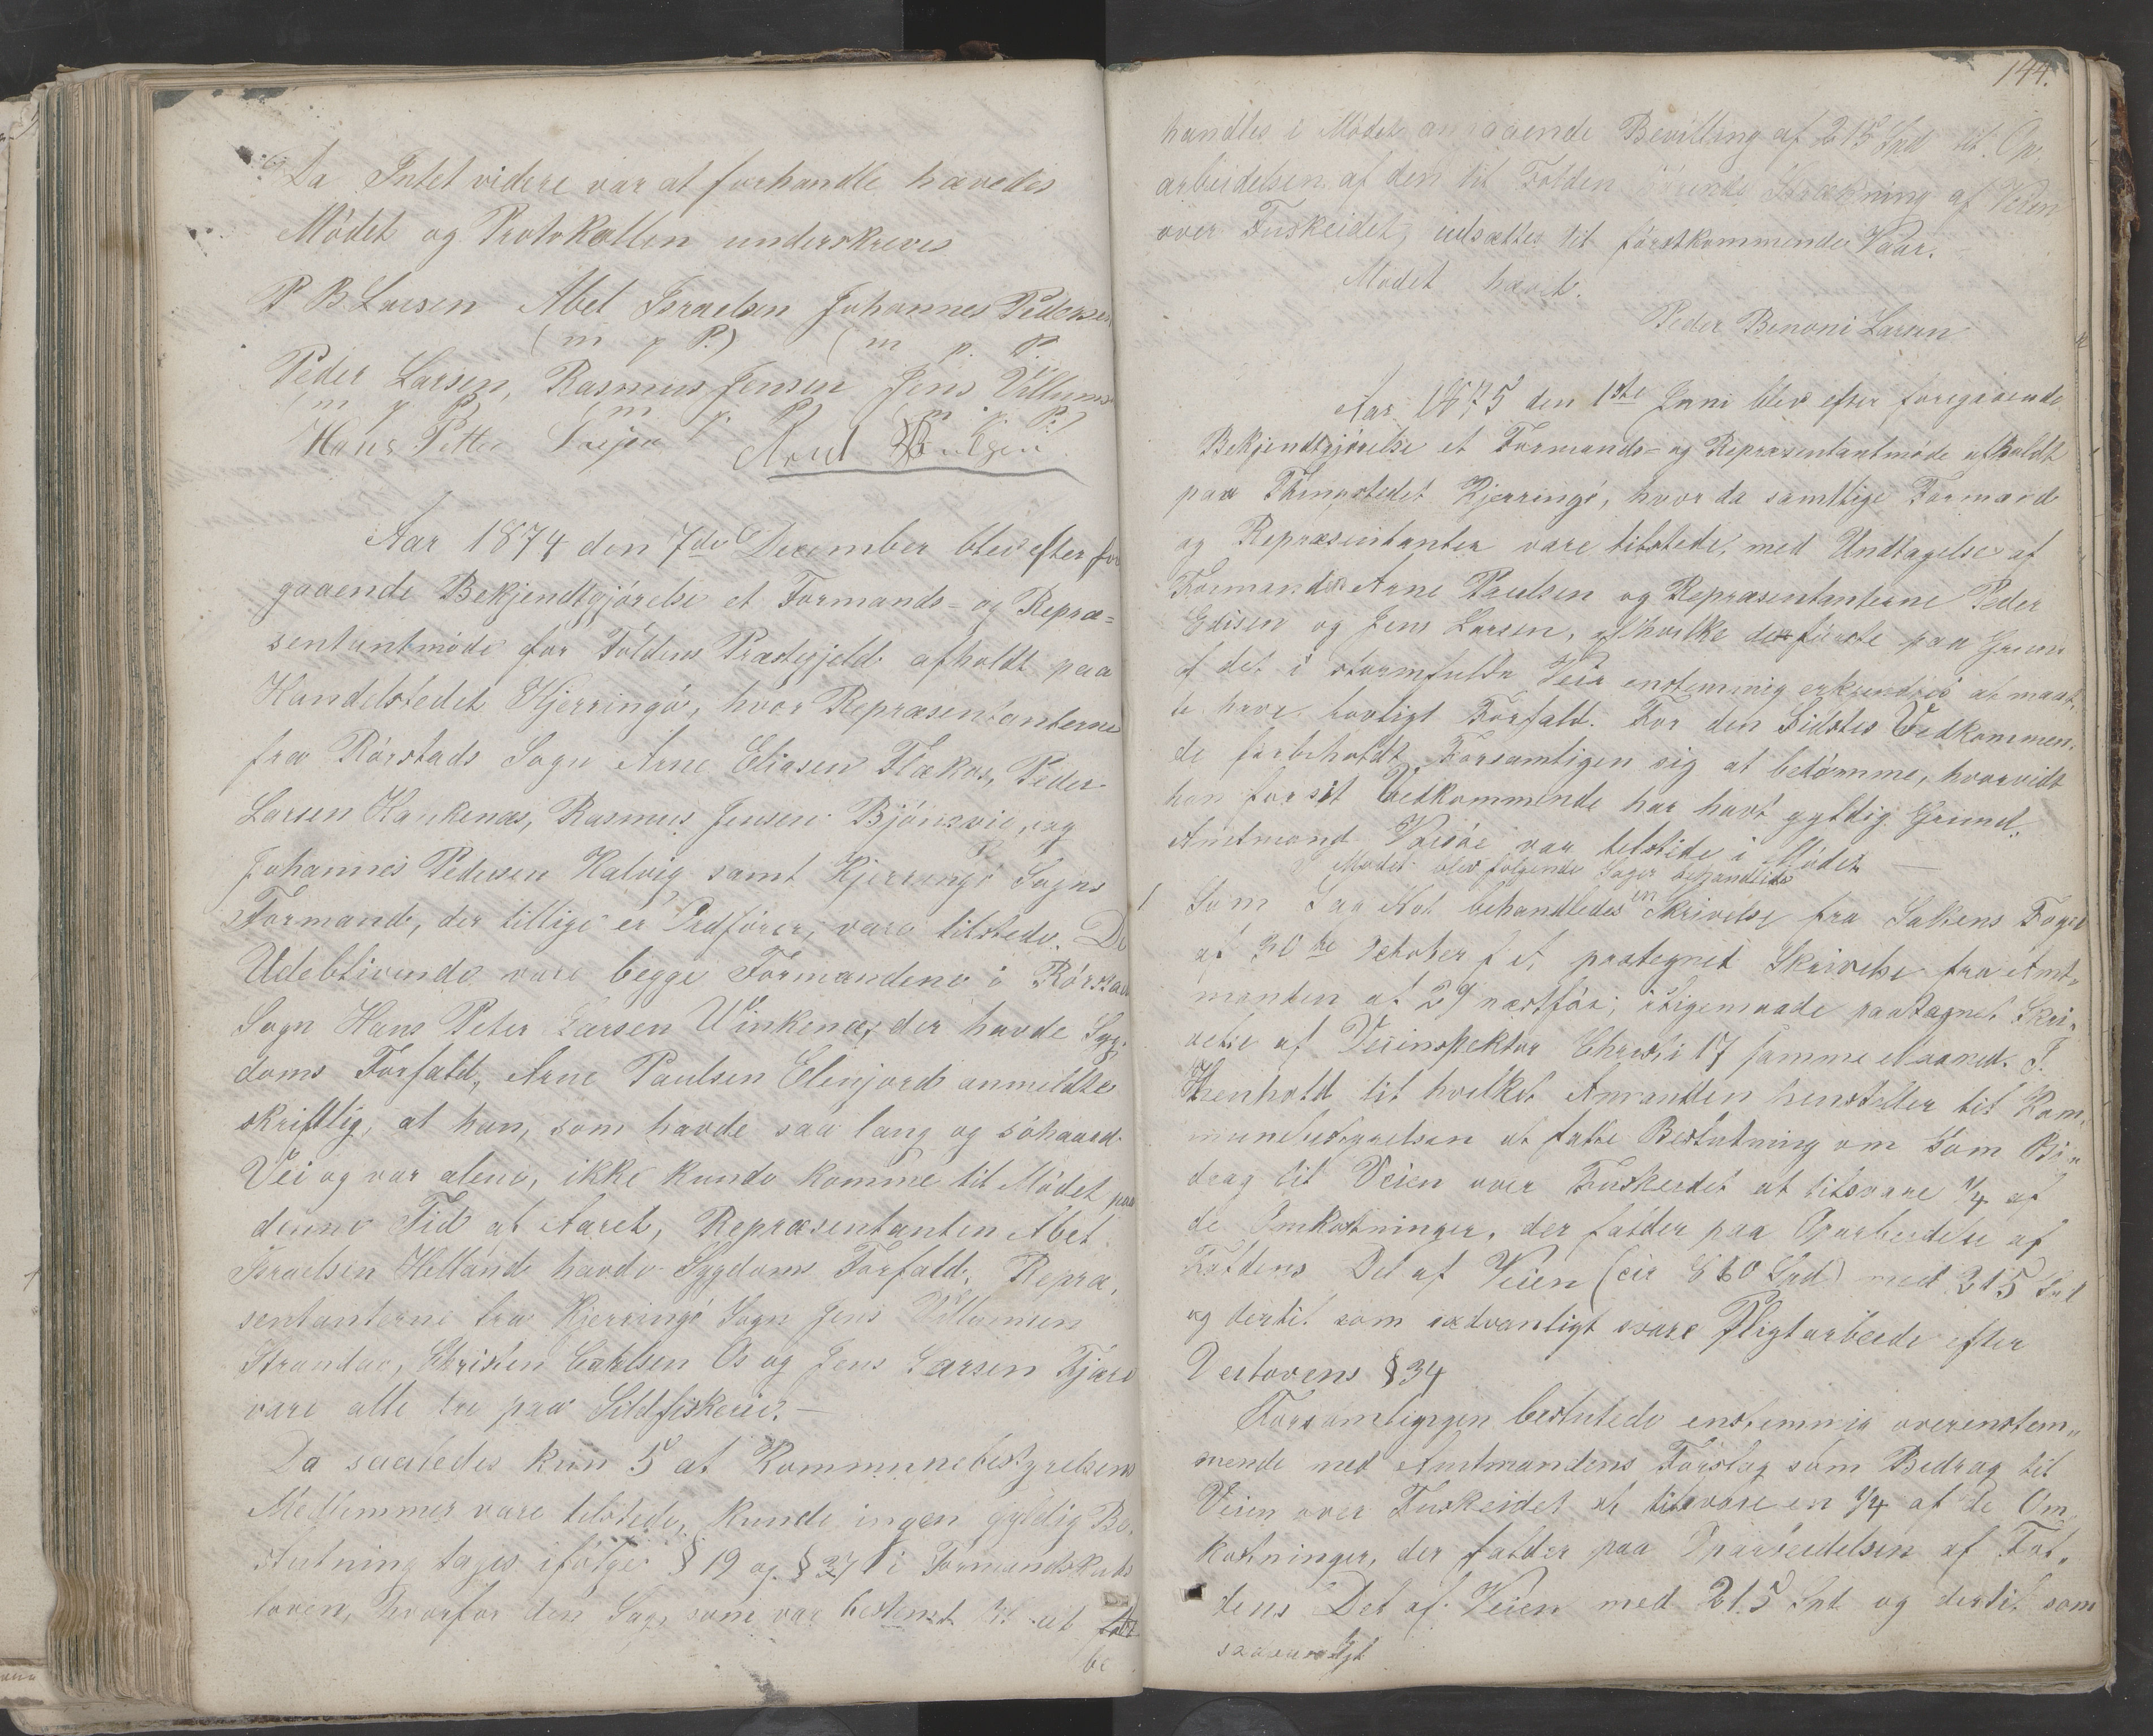 Da Intet videre var at forhandle hævedes
Mödet og Protokollen underskreves
P B Larsen Abel Israelsen Johannes Pedersen
(m p P.) (m p. P.
Peder Larsen, Rasmus Jensen Jens Villums
(m p P) (m p. P) (m. p. P.)
Hans Petter Arnt
Aar 1874 den 7de December blev efter for
gaaende Bekjendtgjörelse et Formands- og Repræ=
sentantmöde for Foldens Præstegjeld afholdt paa
Handelstedet Kjerringö, hvor Repræsentanterne
fra Rörstads Sogn Arne Eliasen Flakas, Peder
Larsen Kankenæs, Rasmus Jensen Björnsvic, og
Johannes Pedersen Kalvig samt Kjerringö Sogns
Formand, der tillige er Ordförer, vare tilstede. De
Udeblivende vare begge Formændene i Rörstad
Sogn Hans Peter Larsen Winkenæs, der havde Syg-
doms Forfald, Arne Paulsen Elvnjord anmeldte
skriftlig, at han, som havde saa lang og söhaard
Vei og var alene, ikke kunde komme til Mödet paa
denne Tid at Aaret, Repræsentanten Abel
Israelsen Helland havde Sygdoms Forfald, Repræ,
sentanterne fra Kjerringö Sogn Jens Villumsen
Strandaa, Christen Carlsen Os og Jens Larsen Fjære
vare alle tre paa Sildfiskeriet.
Da saaledes kun 5 at Kommunebestyrelsens
Medlemmer vare tilstede, kunde ingen gyldig Be,
slutning tages ifölge § 19 og § 37 i Formandskabs
loven, hvorfor den Sag, som var bestemt til at
be
144.
handles i Mödet angaaende Bevilling af 215 Spd til Op,
arbeidelsen af den til Folden hörende Strækning af Veien
over Fuskeidet, udsættes til förstkommende Vaar.
Mödet hævet.
Peder Benoni Larsen
Aar 1875 den 1ste Juni blev efter foregaaende
Bekjendtgjörelse et Formands- og Repræsentantmöde afholdt
paa Thingstedet Kjerringö, hvor da samtlige Formænd
og Repræsentanter vare tilstede, med Undtagelse af
Formanden Arne Paulsen og Repræsentanterne Peder
Edisen og Jens Larsen, af hvilke den förste paa Grund
af det i stormfulde Veir enstemmig erkjendtes at maat,
te have lovligt Forfald. For den Sidstes Vedkommen,
de forbeholdt Forsamligen sig at bedömme, hvorvidt
han for sit Vedkommende har havt gyldig Grund.
Amtmand Worsöe var tilstede i Mödet
I Mödet blev fölgende Sager behandlede
1 Som Sag No1 behandledes en Skrivelse fra Saltens Foged
af 30te October f A, paategnet Skrivelse fra Amt,
manden af 29 næstför; ligemaade paategnet Skri,
velse af Veiinspektør Christi 17 samme Maaned. I
Henhold til hvilket Amtmanden henstiller til Kom,
munebestyrelsen at fatte Beslutning om som Bi,
drag til Veien over Fuskeidet at tilsvare 1/4 af
de Omkostninger, der falder paa Oparbeidelse af
Foldens Del af Veien (cir 860 Spd) med 215 Spd
og dertil som sædvanligt svare Pligtarbeide efter
Veilovens § 34
Forsamligngen besluttede enstemmig overenstem,,
mende med Amtmandens Forslag som Bidrag til
Veien over Fuskeidet at tilsvare en 1/4 af de Om,
kostninger, der falder paa Oparbeidelsen af Fol,
dens Del af Veien med 215 Spd og dertil som
sædvanligt